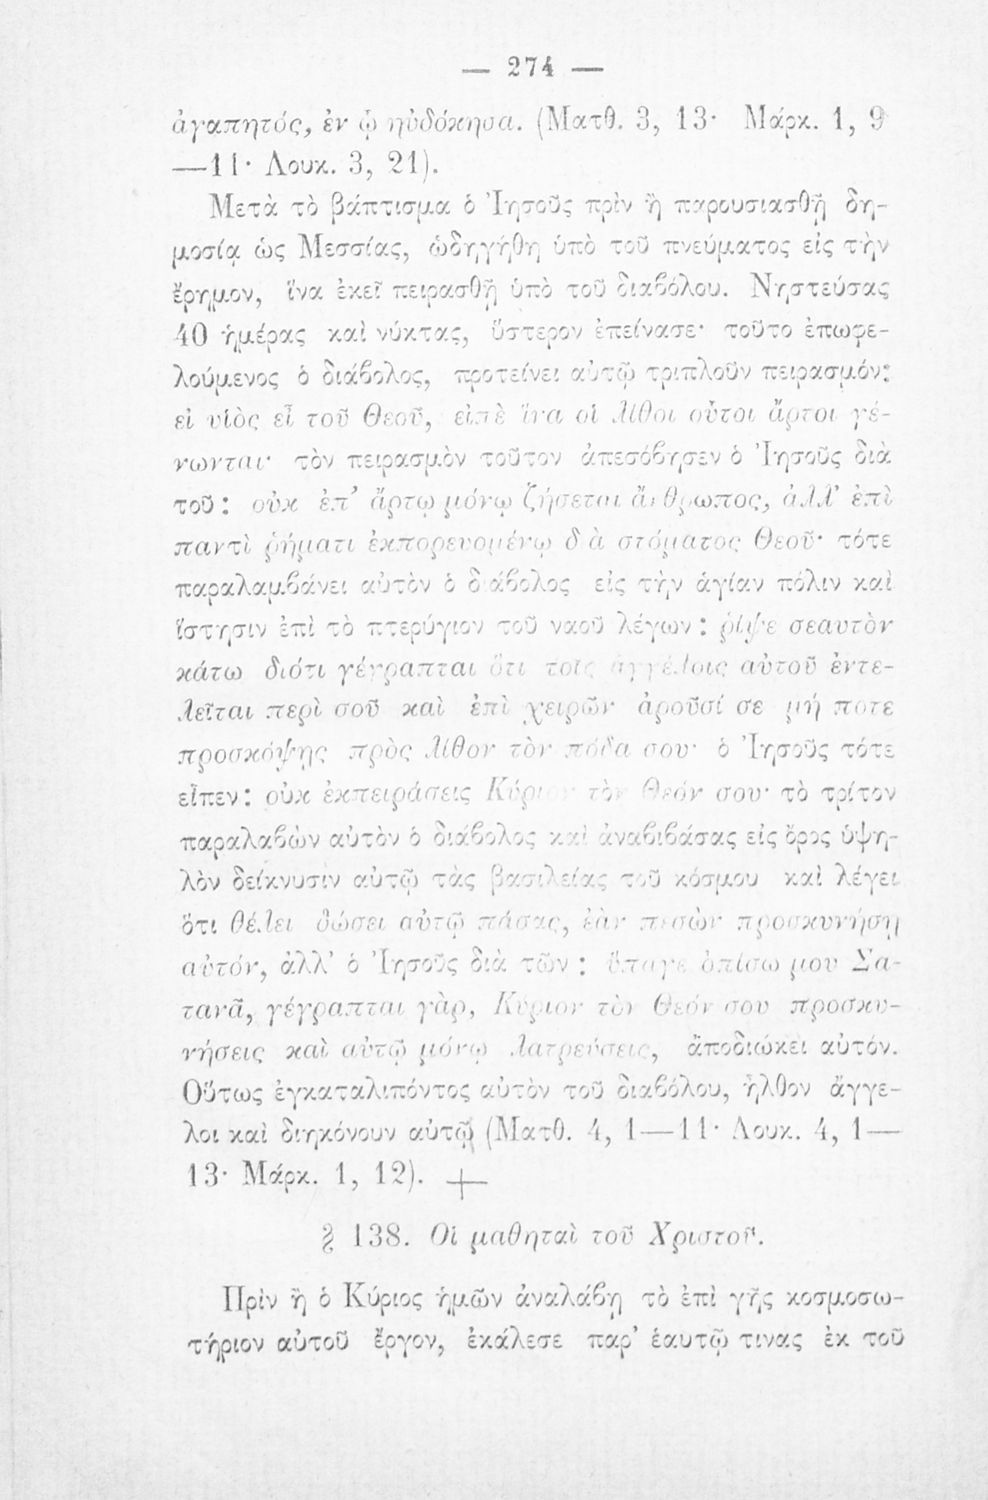 — 274 —
ἀγαπητός, ἐν ᾧ ηὐδόκησα. (Ματθ. 3, 13· Μάρκ. 1, 9
—11· Λουκ. 3, 21).
Μετὰ τὸ βάπτισμα ὁ Ἰησοῦς πρὶν ἢ παρουσιασθῇ δη-
μοσίᾳ ὡς Μεσσίας, ὡδηγήθη ὑπὸ τοῦ πνεύματος εἰς τὴν
ἔρημον, ἵνα ἐκεῖ πειρασθῇ ὑπὸ τοῦ διαβόλου. Νηστεύσας
40 ἡμέρας καὶ νύκτας, ὕστερον ἐπείνασε· τοῦτο ἐπωφε-
λούμενος ὁ διάβολος, προτείνει αὐτῷ τριπλοῦν πειρασμόν:
εἰ υἱὸς εἶ τοῦ Θεοῦ, εἰπὲ ἵνα οἱ λίθοι οὗτοι ἄρτοι γέ-
νωνται· τὸν πειρασμὸν τοῦτον ἀπεσόβησεν ὁ Ἰησοῦς διὰ
τοῦ: οὐκ ἐπ' ἄρτῳ μόνῳ ζήσεται ἄνθρωπος, ἀλλ' ἐπὶ
παντὶ ῥήματι ἐκπορευομένῳ διὰ στόματος Θεοῦ· τότε
παραλαμβάνει αὐτὸν ὁ διάβολος εἰς τὴν ἁγίαν πόλιν καὶ
ἵστησιν ἐπὶ τὸ πτερύγιον τοῦ ναοῦ λέγων: ῥίψε σεαυτὸν
κάτω διότι γέγραπται ὅτι τοῖς ἀγγέλοις αὐτοῦ ἐντε-
λεῖται περὶ σοῦ καὶ ἐπὶ χειρῶν ἀροῦσί σε μή ποτε
προσκόψῃς πρὸς λίθον τὸν πόδα σου· ὁ Ἰησοῦς τότε
εἶπεν: οὐκ ἐκπειράσεις Κύριον τὸν Θεόν σου· τὸ τρίτον
παραλαβὼν αὐτὸν ὁ διάβολος καὶ ἀναβιβάσας εἰς ὄρος ὑψη-
λὸν δείκνυσιν αὐτῷ τὰς βασιλείας τοῦ κόσμου καὶ λέγει
ὅτι θέλει δώσει αὐτῷ πάσας, ἐὰν πεσὼν προσκυνήσῃ
αὐτόν, ἀλλ' ὁ Ἰησοῦς διὰ τῶν: ὕπαγε ὀπίσω μου Σα-
τανᾶ, γέγραπται γὰρ, Κύριον τὸν Θεόν σου προσκυ-
νήσεις καὶ αὐτῷ μόνῳ λατρεύσεις, ἀποδιώκει αὐτόν.
Οὕτως ἐγκαταλιπόντος αὐτὸν τοῦ διαβόλου, ἦλθον ἄγγε-
λοι καὶ διηκόνουν αὐτῷ (Ματθ. 4, 1—11· Λουκ. 4, 1—
13· Μάρκ. 1, 12).
§ 138. Οἱ μαθηταὶ τοῦ Χριστοῦ.
Πρὶν ἢ ὁ Κύριος ἡμῶν ἀναλάβῃ τὸ ἐπὶ γῆς κοσμοσω-
τήριον αὐτοῦ ἔργον, ἐκάλεσε παρ' ἑαυτῷ τινας ἐκ τοῦ